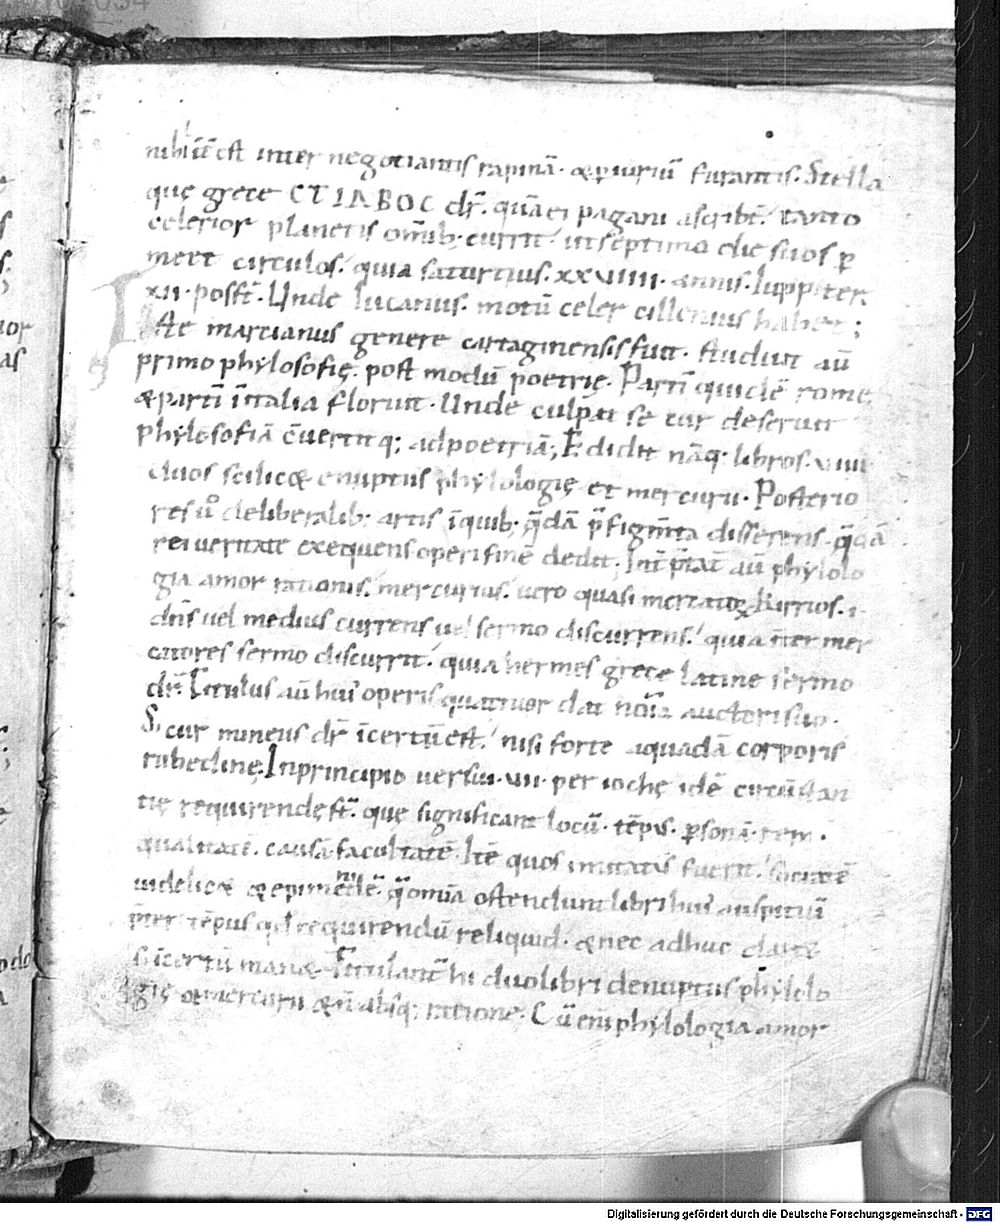 nihil ē est inter negotiantis rapinā. & ꝑiuriū furantis. Stella
quę grece CTIABOC dr̄. quā ei pagani ascribt̄. tanto
celerior planetis omīb; currit. ut septimo die suos ꝑ
meet circulos. quia saturnus. xxviiii. annis. Iuppiter
xii. post̄. Unde lucanus. motū celer cillenius habet;
Iste marcianus genere cartaginensis fuit. studuit aū
primo phylosofię. post modū poetrię. Partī quidē romę
& partī ītalia floruit. Unde culpat se cur deseruit
phylosofiā c̄uertitq; ad poetriā; Edidit nāq. libros. viiii
duos scilic& e nuptiis phylologię et mercurii. Posterio
res ū deliberalib; artis īquib; q̄dā p̄figmta disserens. q̄dā
rei veritate exequens operi finē dedit. Int̄ p̄tat̄ aū phylolo
gia amor rationis. mercurius. vero quasi mercatoꝝ kirrios. i.
dn̄s vel medius currens vel sermo discurrens. quia īter mer
catores sermo discurrit. quia hermes grece latine sermo
dr̄. Titulus aū hui' operis quattuor dat nom̄a auctori suo.
S; cur mineus dr̄ īcertū est. nisi forte aquadā corporis
rubedine. Inprincipio versui. vii. per iochę idē circūstan
tię requirendę st̄. quę significant locū. tēpus. ꝑsonā. rem.
qualitatē. causā. facultatē. Itē quos imitatus fuerit.
videlic& & epimenidē. qđ omīa ostendunt libri hui' auspitiū
p̄ter tēpus qđ requirendū reliquid. & nec adhuc clare
s; īcertū man&. Titulant̄ hi duo libri denuptiis phylolo
gię & mercurii & n̄ absq; ratione. Cū enī phylologia amor
Digitalisierung gefördert durch die Deutsche Forschungsgemeinschaft - DFG